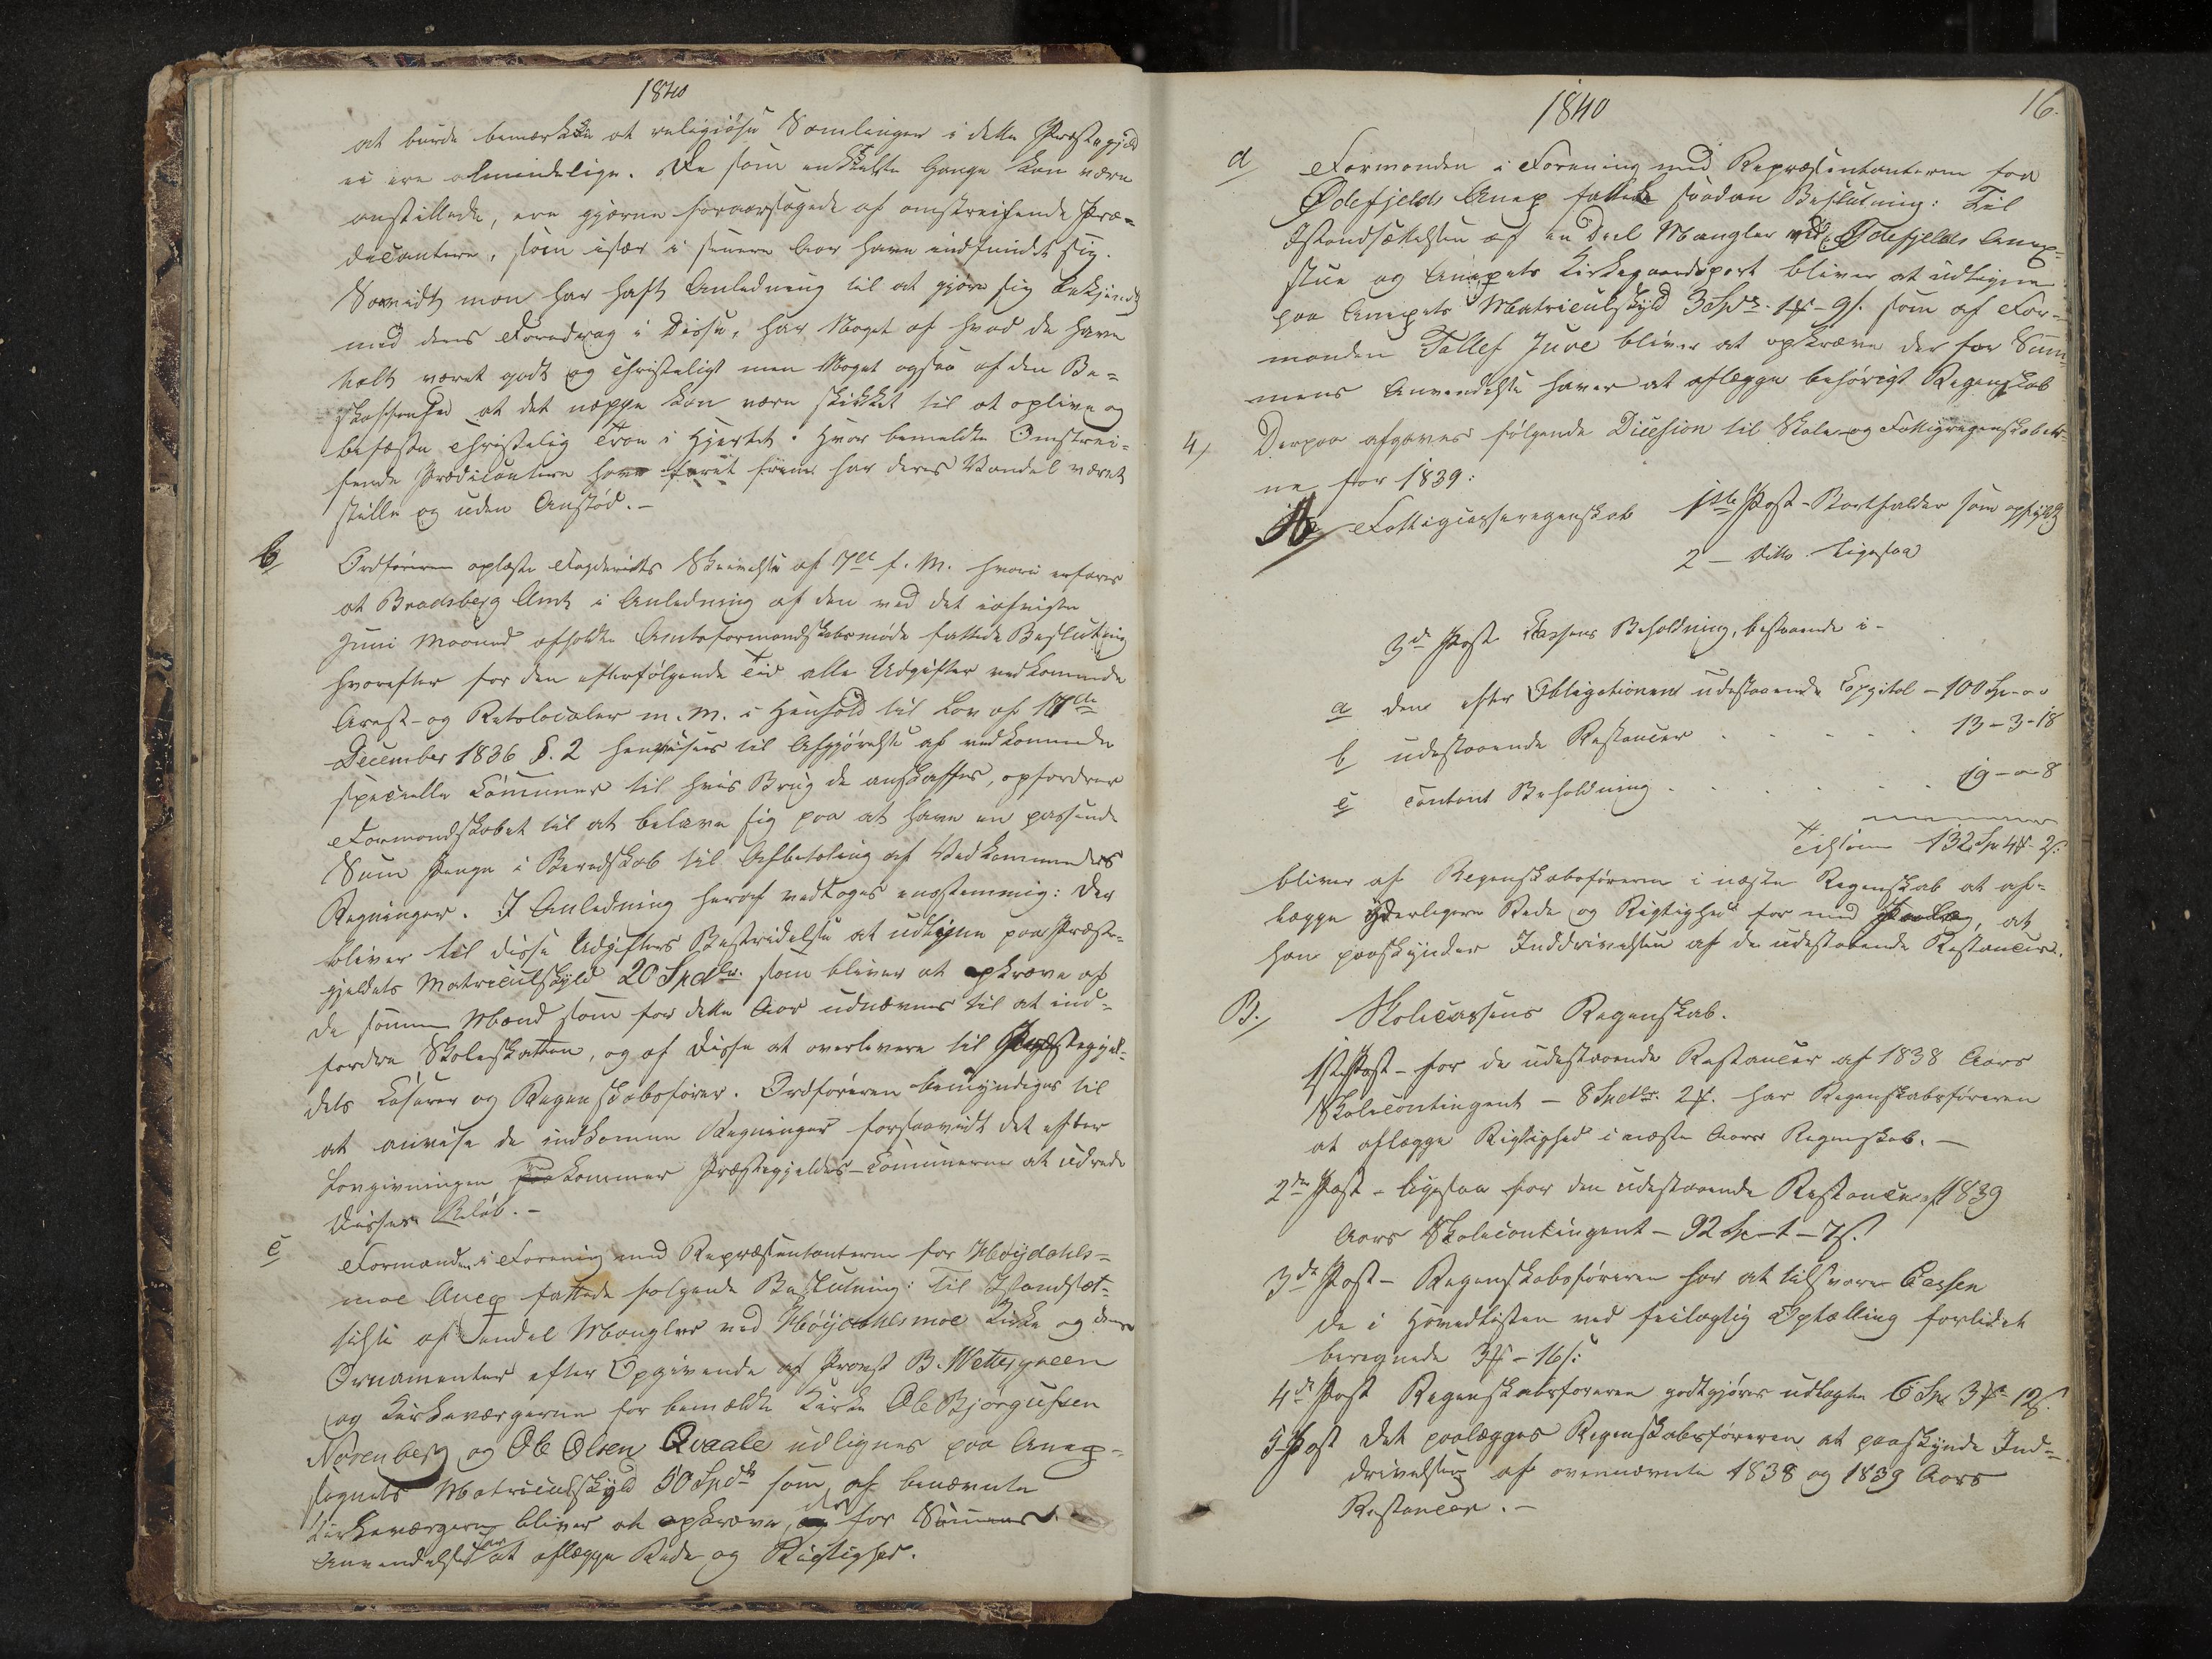 1840
at burde bemærkke at religiøse Samlinger i dette Præstegjeld
ei ere almindelige. De som enkelte Gange kan være
anstillede, ere gjerne foraarsagede af omstreifende Præ-
dicantere, som især i senere Aar have indfundet sig.
Saavidt man har haft Anledning til at gjøre sig bekjendt
med deres Foredrag i Disse, har Noget af hvad de have
talt været godt og christeligt men Noget ogsaa af den Be-
skaffenhed at det neppe kan være skikket til at oplive og
befæste christelig Troe i Hjertet. Hvor bemeldte Omstrei-
fende Prædicantere have faret frem har deres Vandel været
stille og uden Anstød.-
b
Ordføreren oplæste Fogderiets Skrivelse af 17de f. M. hvori erfares
at Bradsberg Amt i Anledning af den ved det i afvigte
Juni Maaned afholdte Amtsformandskabsmøde fattede Beslutning
hvorefter for den efterfølgende Tid alle Udgifter vedkommende
Arrest- og Retslocaler m. M. i Henhold til Lov af 17de
December 1836 §. 2 henvises til Afgjørelse af vedkommende
specielle Communer til hvis Brug de anskaffes, opfordrer
Formandskabet til at belave sig paa at have en passende
Sum Penge i Beredskab til Afbetaling af Vedkommendes
Regninger. I Anledning heraf vedtoges eenstemmig: Der
bliver til disse Udgifters Bestridelse at udligne paa Præste-
gjeldets Matriculskyld 20 Spdlr. som bliver at opkræve af
de samme Mænd som for dette Aar udnævnes til at ind-
fordre Skoleskatten, og af disse at overlevere til Præstegjel-
dets Casserer og Regenskabsfører. Ordføreren bemyndiges til
at anvise de indkomne Regninger forsaavidt det efter
Lovgivningen tilkommer Præstegjeldes-Communerne at udrede
disses Beløb.-
c
Formanden i Forening med Repræsentanterne for Høydahls-
moe Anex fattede følgende Beslutning: Til Istandsæt-
telse af endel Mangler ved Høydahlsmoe Kirke og dens
Ornamenter efter Opgivende af Provst B. Wettergreen
og Kirkeværgerne for bemeldte Kirke Ole Bjørgufsen
Nørenberg og Ole Olsen Qvaale udlignes paa Anex-
sognets Matriculskyld 50 Spdlr som af benævnte
Kirkeværgere bliver at opkræve, der for Summens
Anvendelse har at aflægge Rede og Rigtighed.
1840
16.
d
Formanden i Forening med Repræsentanterne for
Ødefjelds Anex fattede saadan Beslutning: Til
Istandsættelsen af en Deel Mangler ved Ødefjelds Anex-
stue og Anexets Kirkegaardsport bliver at udligne
paa Anexets Matriculskyld 3 Spdr. 1 ß - 9 s. som af For-
manden Tallef Juve bliver at opkræve der for Sum-
mens Anvendelse haver at aflægge behørigt Regenskab
4,
Derpaa afgaves følgende Dicesion til Skole- og Fattigregenskaber-
ne for 1839:
A Fattigcasseregenskab 1ste Post - Bortfalder som opfyldt
2 - ditto ligesaa
3die Post Cassens Beholdning, bestaaende i-
a den efter Obligationen udestaaende Capital - 100 Sp - o o
b udestaaende Restancer . . . . . 13 - 3 - 18
c contant Beholdning . . . . . . 19 - o - 8
Tilsam 132 Sp 4 ß 2 s.
bliver af Regenskabsføreren i næste Regenskab at af-
lægge yderligere Rede og Rigtighed for med Paalæg, at
han paaskynder Inddrivelsen af de udestaaende Restancer.
B.,
Skolecassens Regenskab.
1ste Post - for de udestaaende Restancer af 1838 Aars
Skolecontingent - 8 Spdlr. 2 ß. har Regenskabsføreren
at aflægge Rigtighed i næste Aars Regenskab. -
2den Post - ligesaa for den udestaaende Restance af 1839
Aars Skolecontingent - 92 Sp - 1 - 7 s.
3die Post - Regenskabsføreren har at tilsvare Cassen
de i Hovedlisten ved feilagtig Optælling forlidet
beregnede 3 ß - 16 s:
4de Post Regenskabsføreren godtgjøres udlagte 6 Sp 3 ß 12 s.
5 Post det paalægges Regenskabsføreren at paaskynde Ind-
drivelsen af ovennævnte 1838 og 1839 Aars
Restancer. -